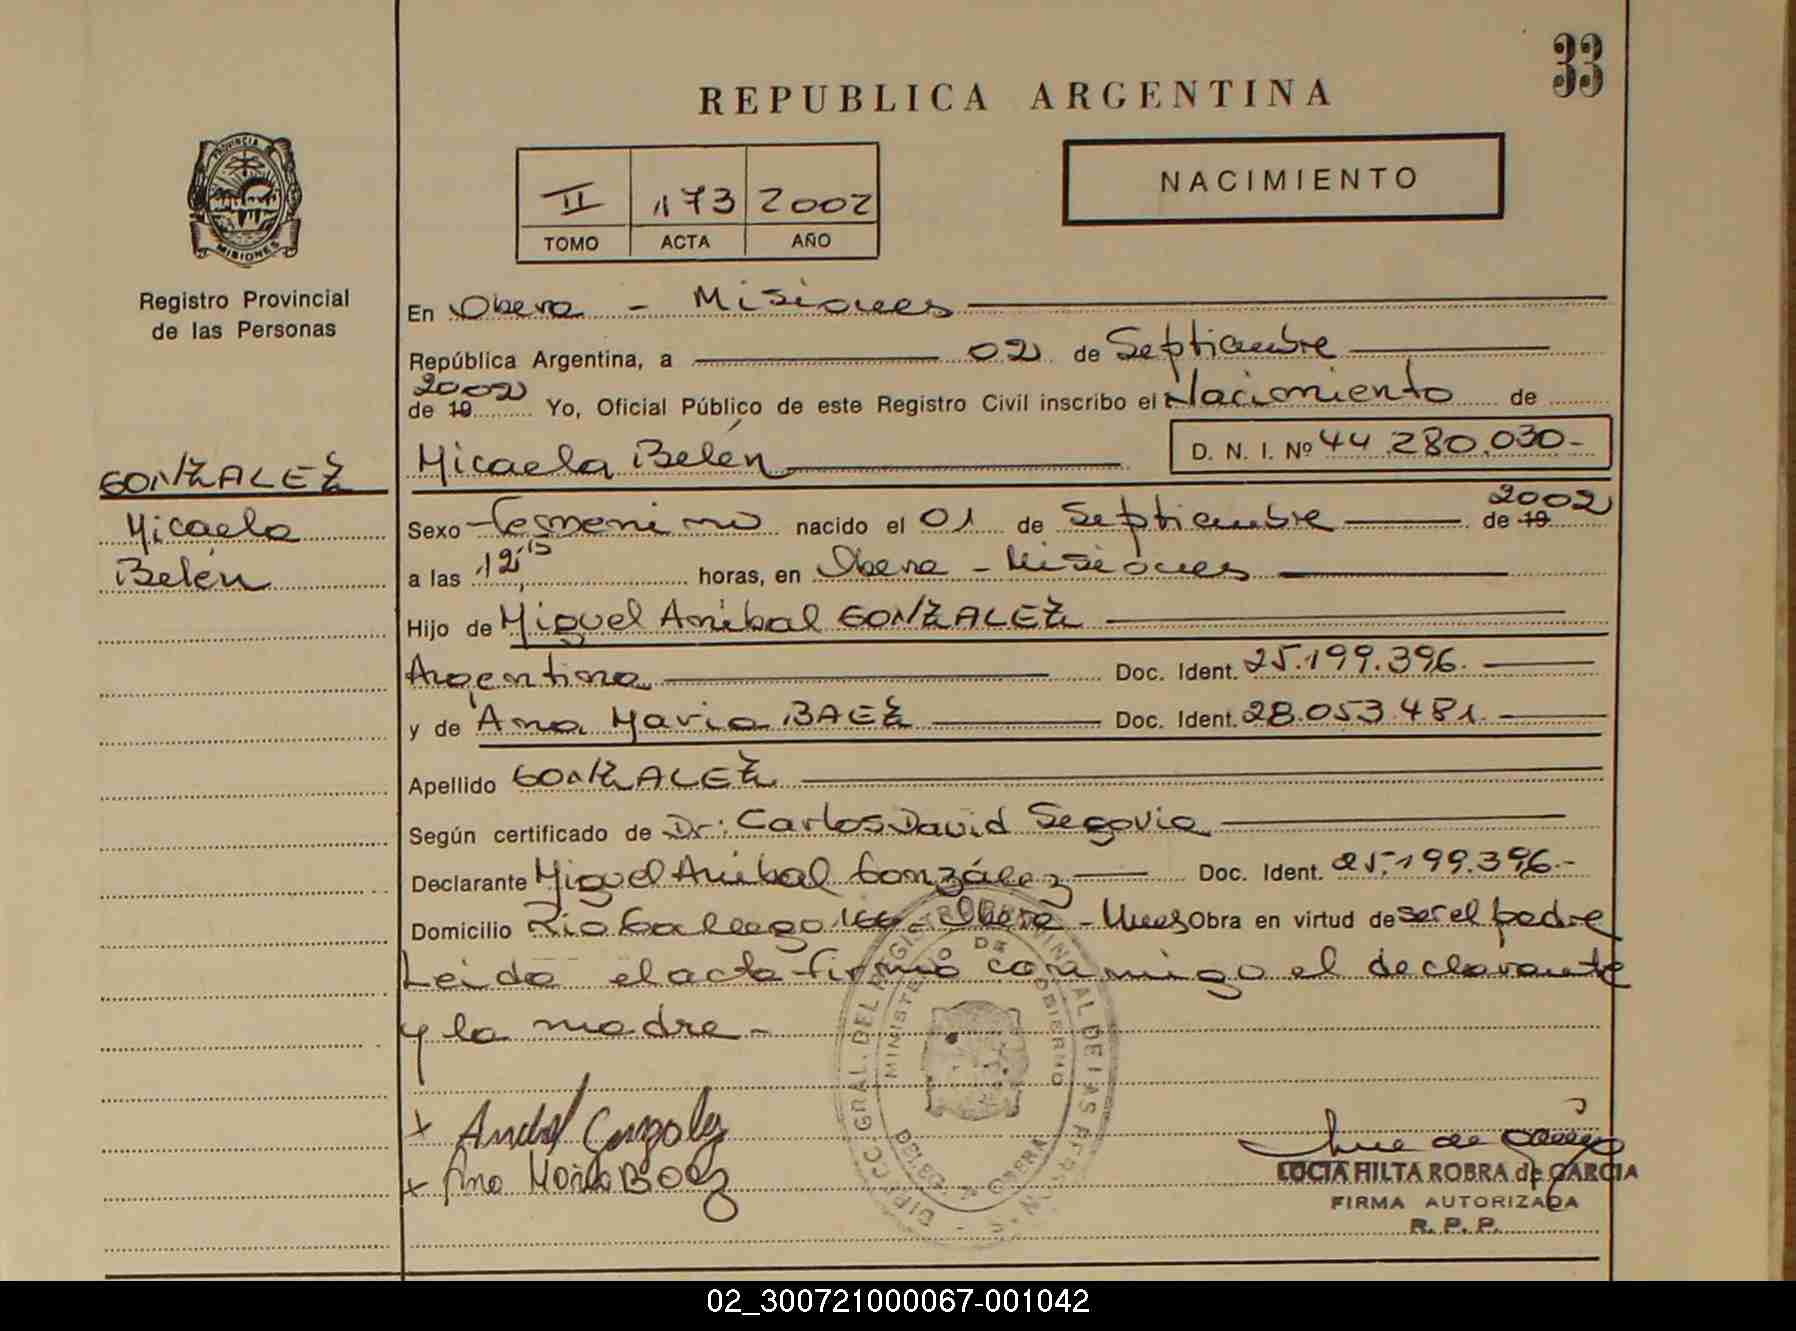 33
REPUBLICA ARGENTINA
PROVINCIA DE
MISIONES
Registro Provincial
de las Personas
II 173 2002
TOMO ACTA AÑO
NACIMIENTO
En Obera - Misiones
República Argentina, a 02 de Septiembre
de 19 2002 Yo, Oficial Público de este Registro Civil inscribo el Nacimiento de
Micaela Belén D. N. I. Nº 44.280.030-
GONZALEZ
Micaela
Belén
Sexo femenino nacido el 01 de Septiembre de 19 2002
a las 12,15 horas, en Obera - Misiones
Hijo de Miguel Anibal GONZALEZ
Argentino Doc. Ident. 25.199.396.
y de Ana Maria BAEZ Doc. Ident. 28.053.481.
Apellido GONZALEZ
Según certificado de Dr: Carlos David Segovia
Declarante Miguel Anibal González Doc. Ident. 25.199.396.-
Domicilio Rio Gallego 166 - Obera - Mnes Obra en virtud de ser el padre
Leida el acta firmó conmigo el declarante
y la madre -
DIRECC. GRAL. DEL REGISTRO PROVINCIAL DE LAS PERSONAS
MINISTERIO DE GOBIERNO
OBERA
x Anibal Gonzalez
x Ana Maria Baez
LUCIA HILTA ROBRA de GARCIA
FIRMA AUTORIZADA
R. P. P.
02_300721000067-001042